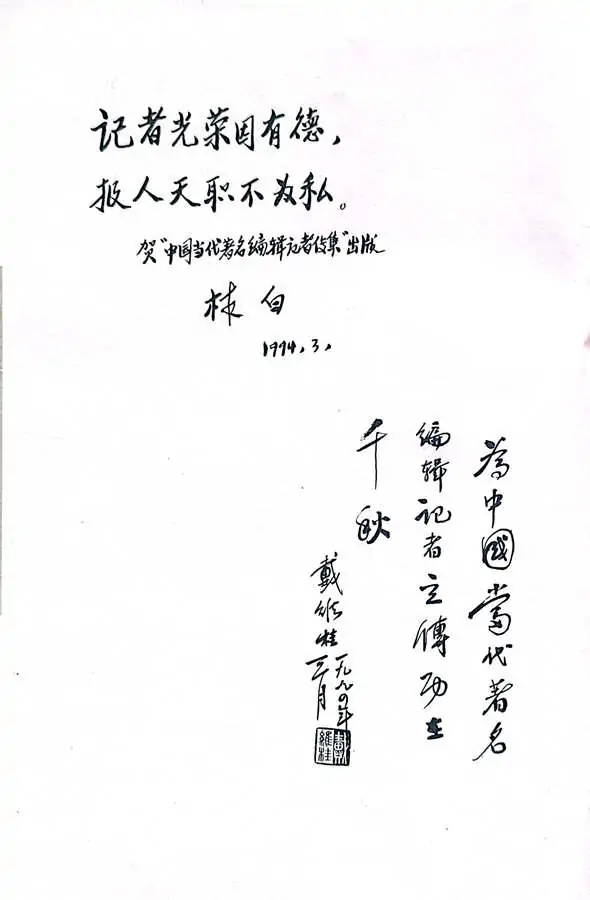 记者光荣因有德，
报人天职不为私。
贺“中国当代著名编辑记者传集”出版
林白
1994.3.
為中國當代著名
编辑记者立傳功在
千秋
戴维桂
一九九四年
三月
戴維桂